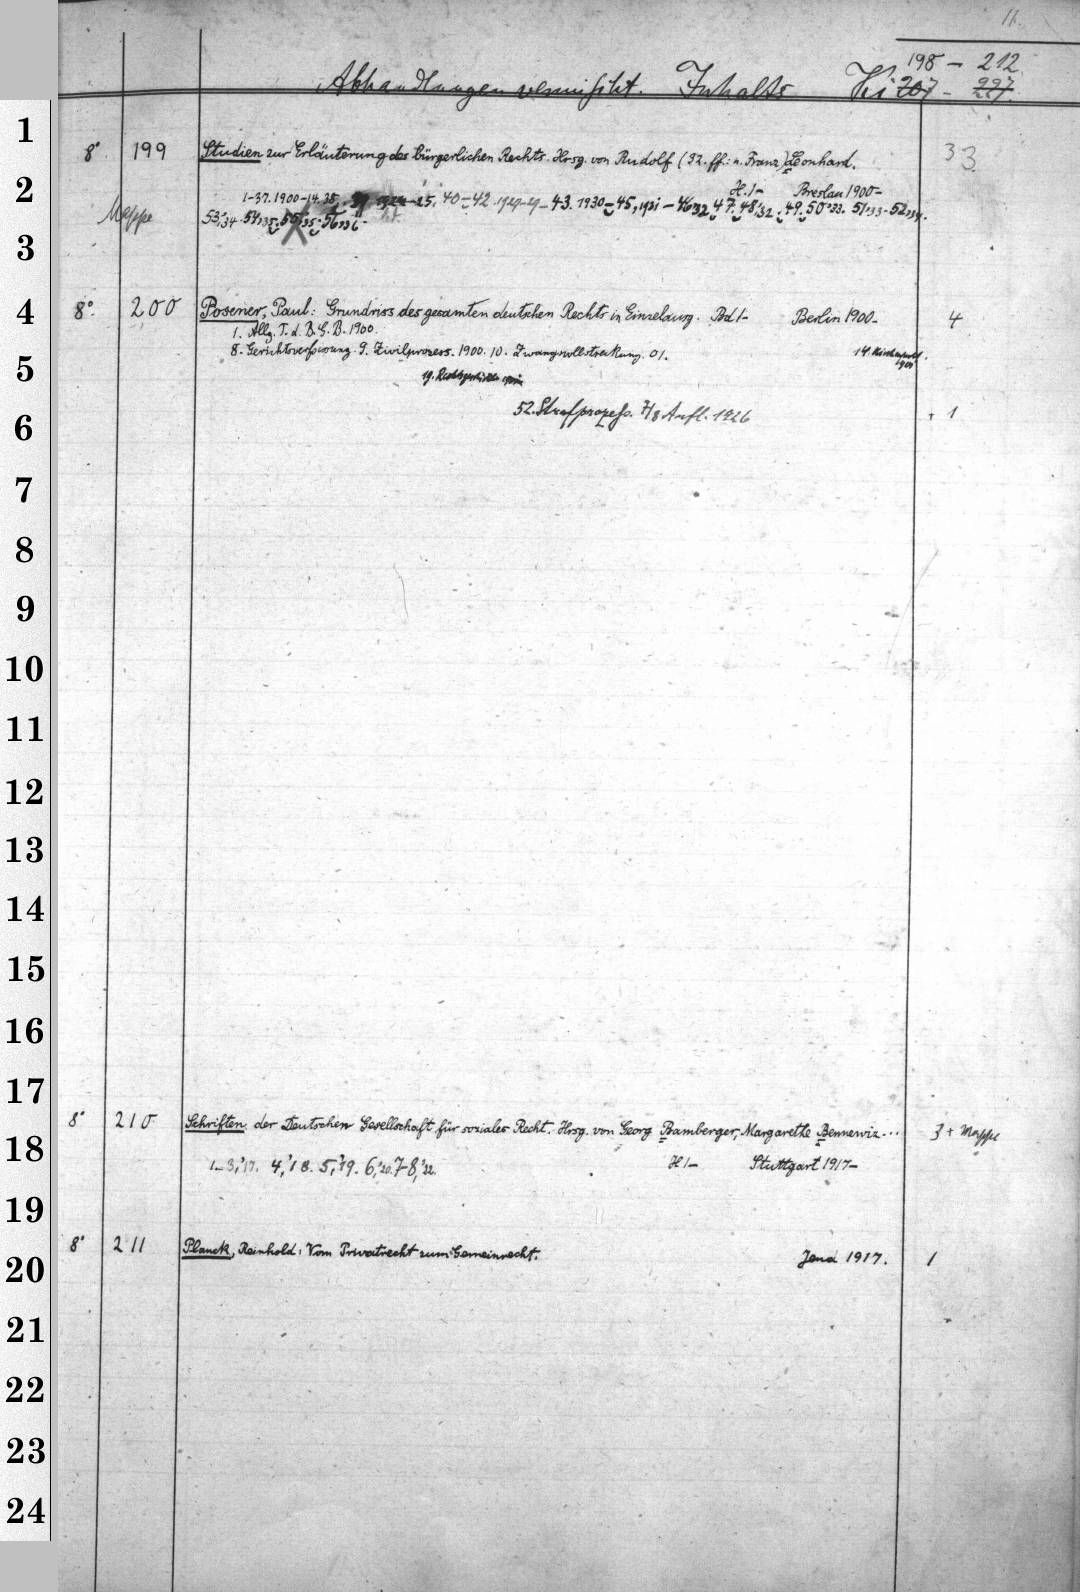 11.
198 - 212
Abhandlungen vermischt. Inhalts Ki 207 - 227.
1
8° 199 Studien zur Erläuterung des bürgerlichen Rechts. Hrsg. von Rudolf (32. ff.: u. Franz) Leonhard. 33
2
H. 1- Breslau 1900-
Mappe 1-37. 1900-14. 38, 25. 40-42 1929-29- 43. 1930-45, 1931-46'32 47. 48,'32 49. 50'33. 51'33-52'34.
53,'34 54'35. 55'35. 56'36
3
4
8° 200 Posener, Paul: Grundriss des gesamten deutschen Rechts in Einzelausg. Bd 1- Berlin 1900- 4
1. Allg. T. d. B. G. B. 1900.
8. Gerichtsverfassung. 9. Zivilprozess. 1900. 10. Zwangsvollstreckung. 01. 14.
5
19.
52. Strafprozess. 7/8 Aufl. 1926 + 1
6
7
8
9
10
11
12
13
14
15
16
17
8° 210 Schriften der Deutschen Gesellschaft für soziales Recht. Hrsg. von Georg Bamberger, Margarethe Bennewiz... 3 + Mappe
18
1-3,'17. 4,'18. 5,'19. 6,'20. 7-8,'22. H 1- Stuttgart 1917-
19
8° 211 Planck, Reinhold: Vom Privatrecht zum Gemeinrecht. Jena 1917. 1
20
21
22
23
24